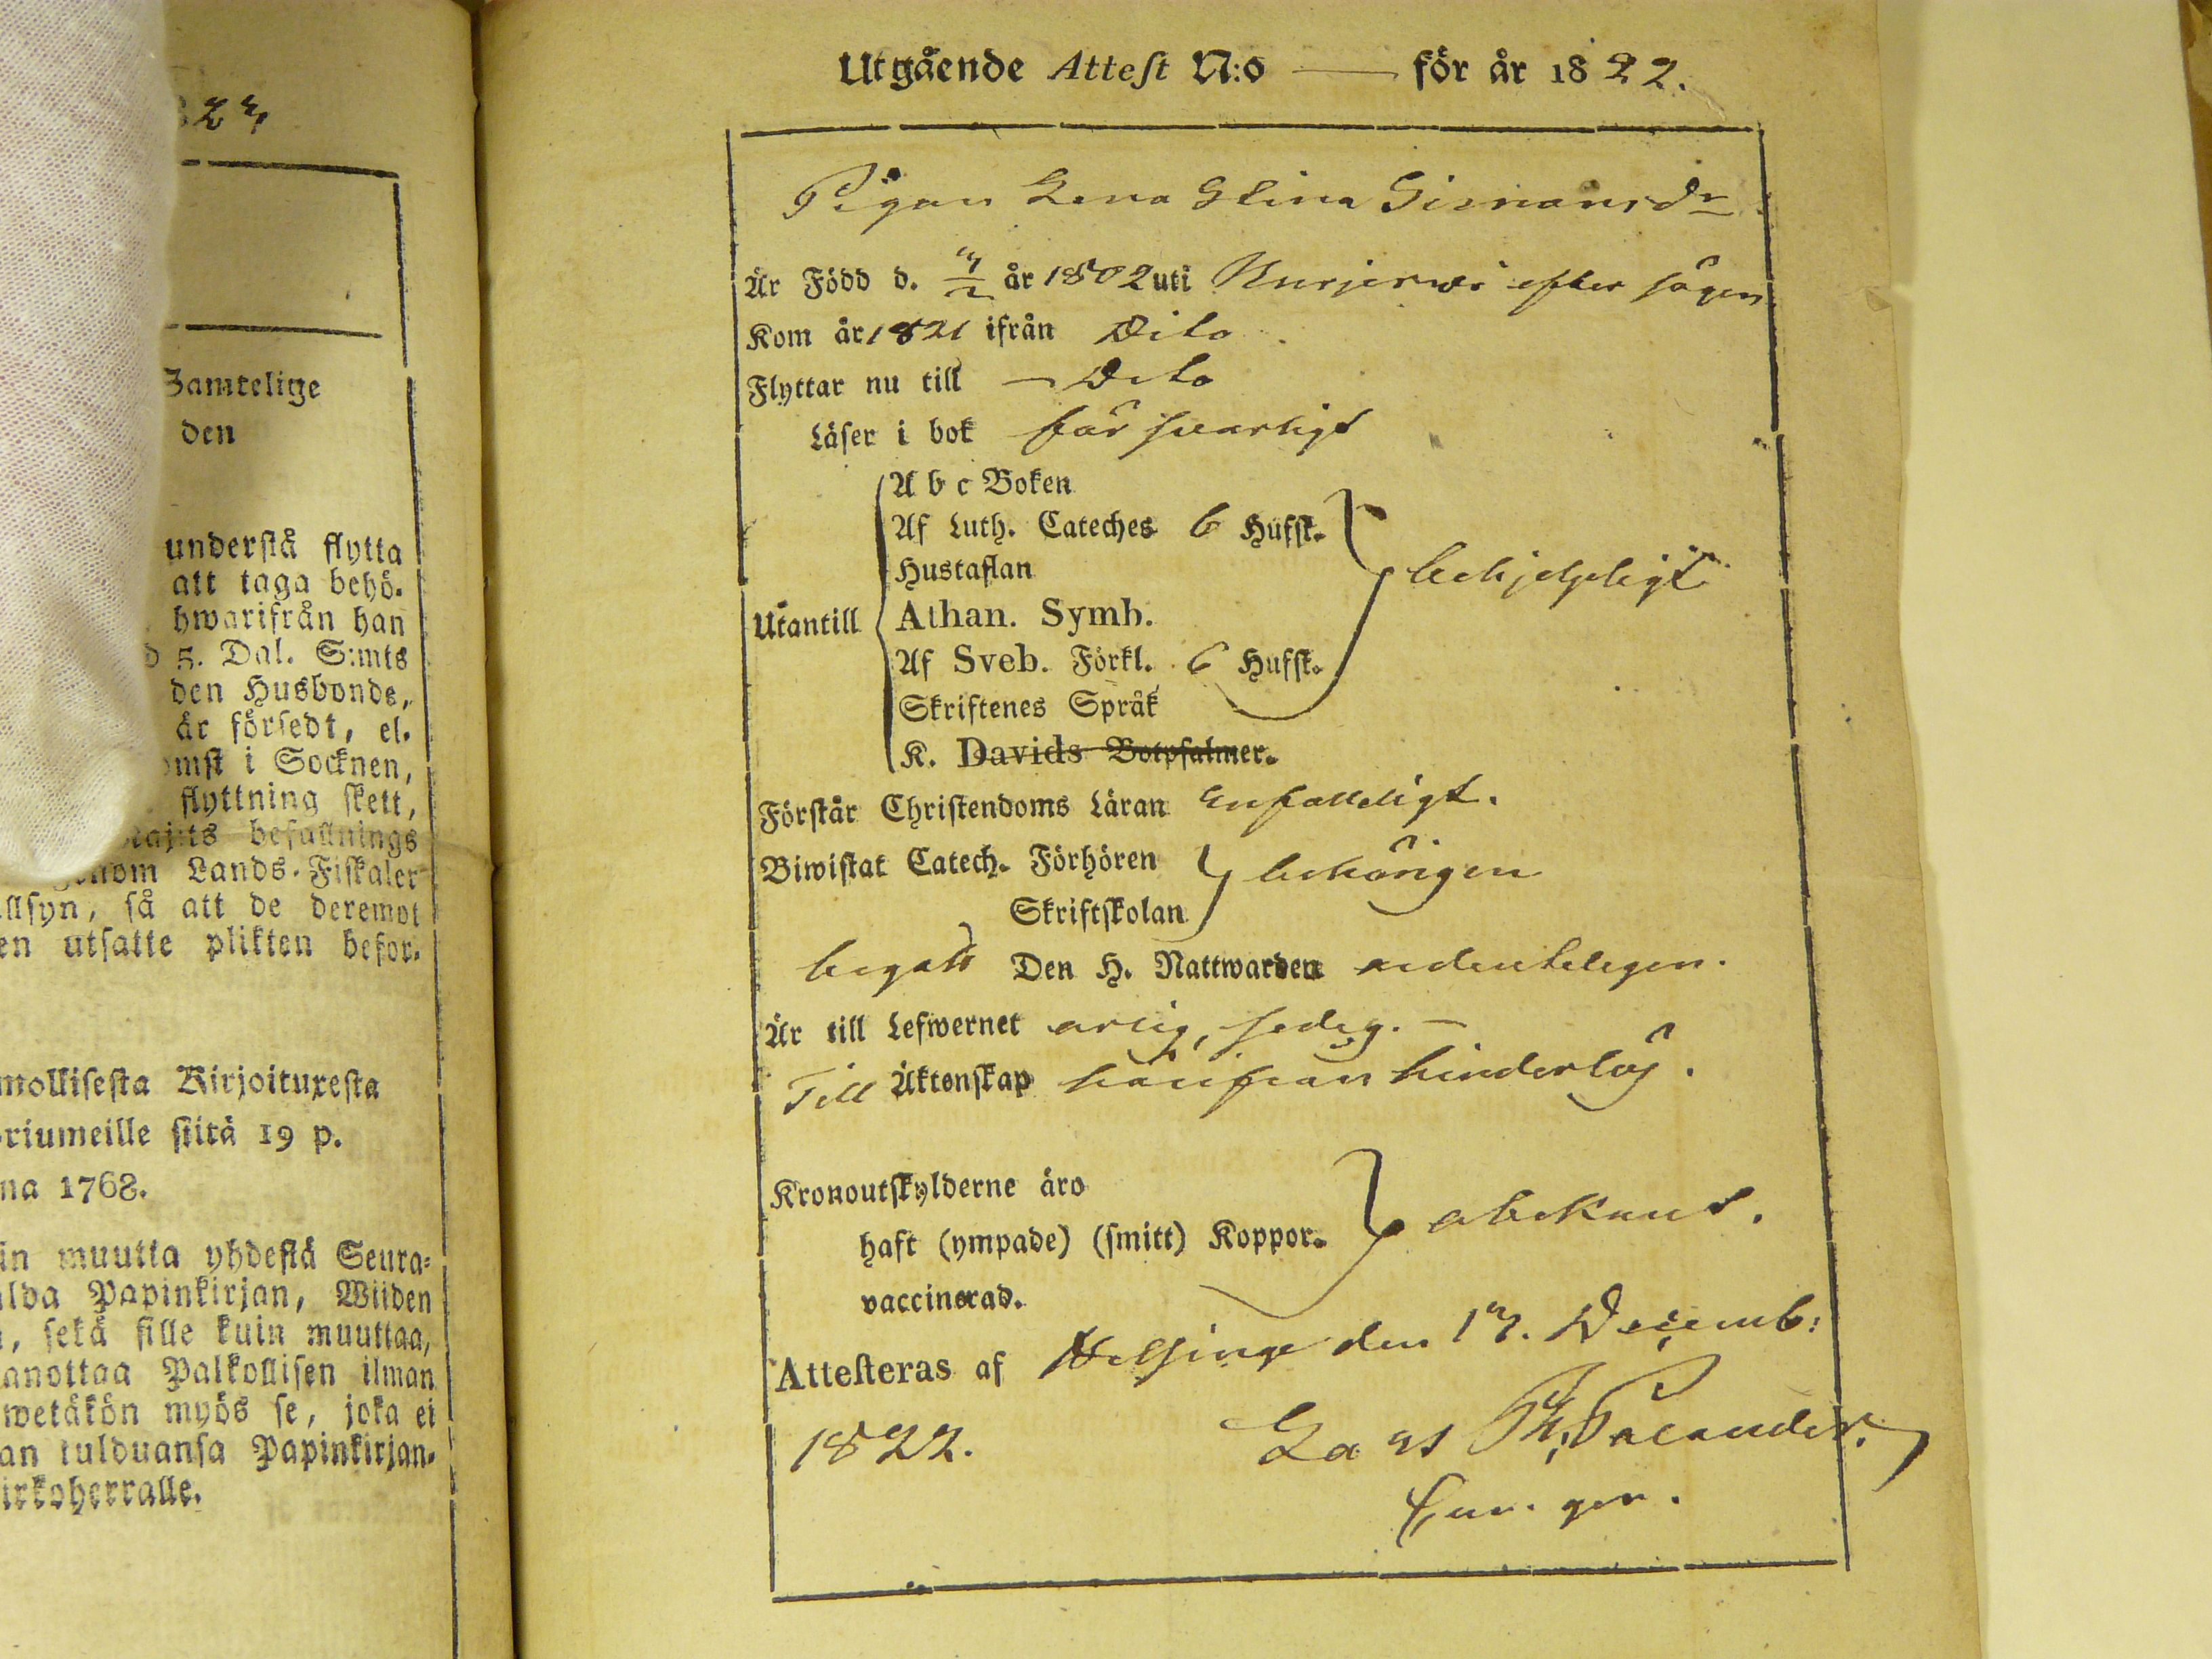 827,
Samtelige
den
understå flytta
att taga behö-
hwarifrån han
5. Dal. S:mts
den Husbonde,
är försedt, el-
omst i Socknen,
flyttning skett,
Maj:ts befallnings
genom Lands-Fiskaler
llsyn, så att de deremot
en utsatte plikten befor-
mollisesta Kirjoituxesta
riumeille siitä 19 p.
na 1768.
in muutta yhdestä Seura-
lda Papinkirjan, Wiiden
, sekä sille kuin muuttaa,
anottaa Palkollisen ilman
wetäkön myös se, joka ei
an tulduansa Papinkirjan-
irkoherralle.
Utgående Attest N:o — för år 1822.
Pigan Lena Stina Simonsdr
Är Född d. år 1802 uti efter sägen
Kom år 1821 ifrån Dito
Flyttar nu till — Dito
Läser i bok försvarligt
A b c Boken
Af Luth. Cateches 6 Hufst.
Hustaflan
Utantill Athan. Symb. behjelpligt
Af Sveb. Förkl. 6 Hufst.
Skriftenes Språk
K. Davids Botpsalmer.
Förstår Christendoms Läran enfalleligt.
Biwistat Catech. Förhören behörigen
Skriftskolan
begått Den H. Nattwarden ordenteligen.
Är till Lefwernet ärlig, sedig. —
Till Äktenskap härifrån hinderlös.
Kronoutskylderne äro
haft (ympade) (smitt) Koppor. obekant.
vaccinerad.
Attesteras af Helsinge den 17. Decemb:
1822. Lars Palander.